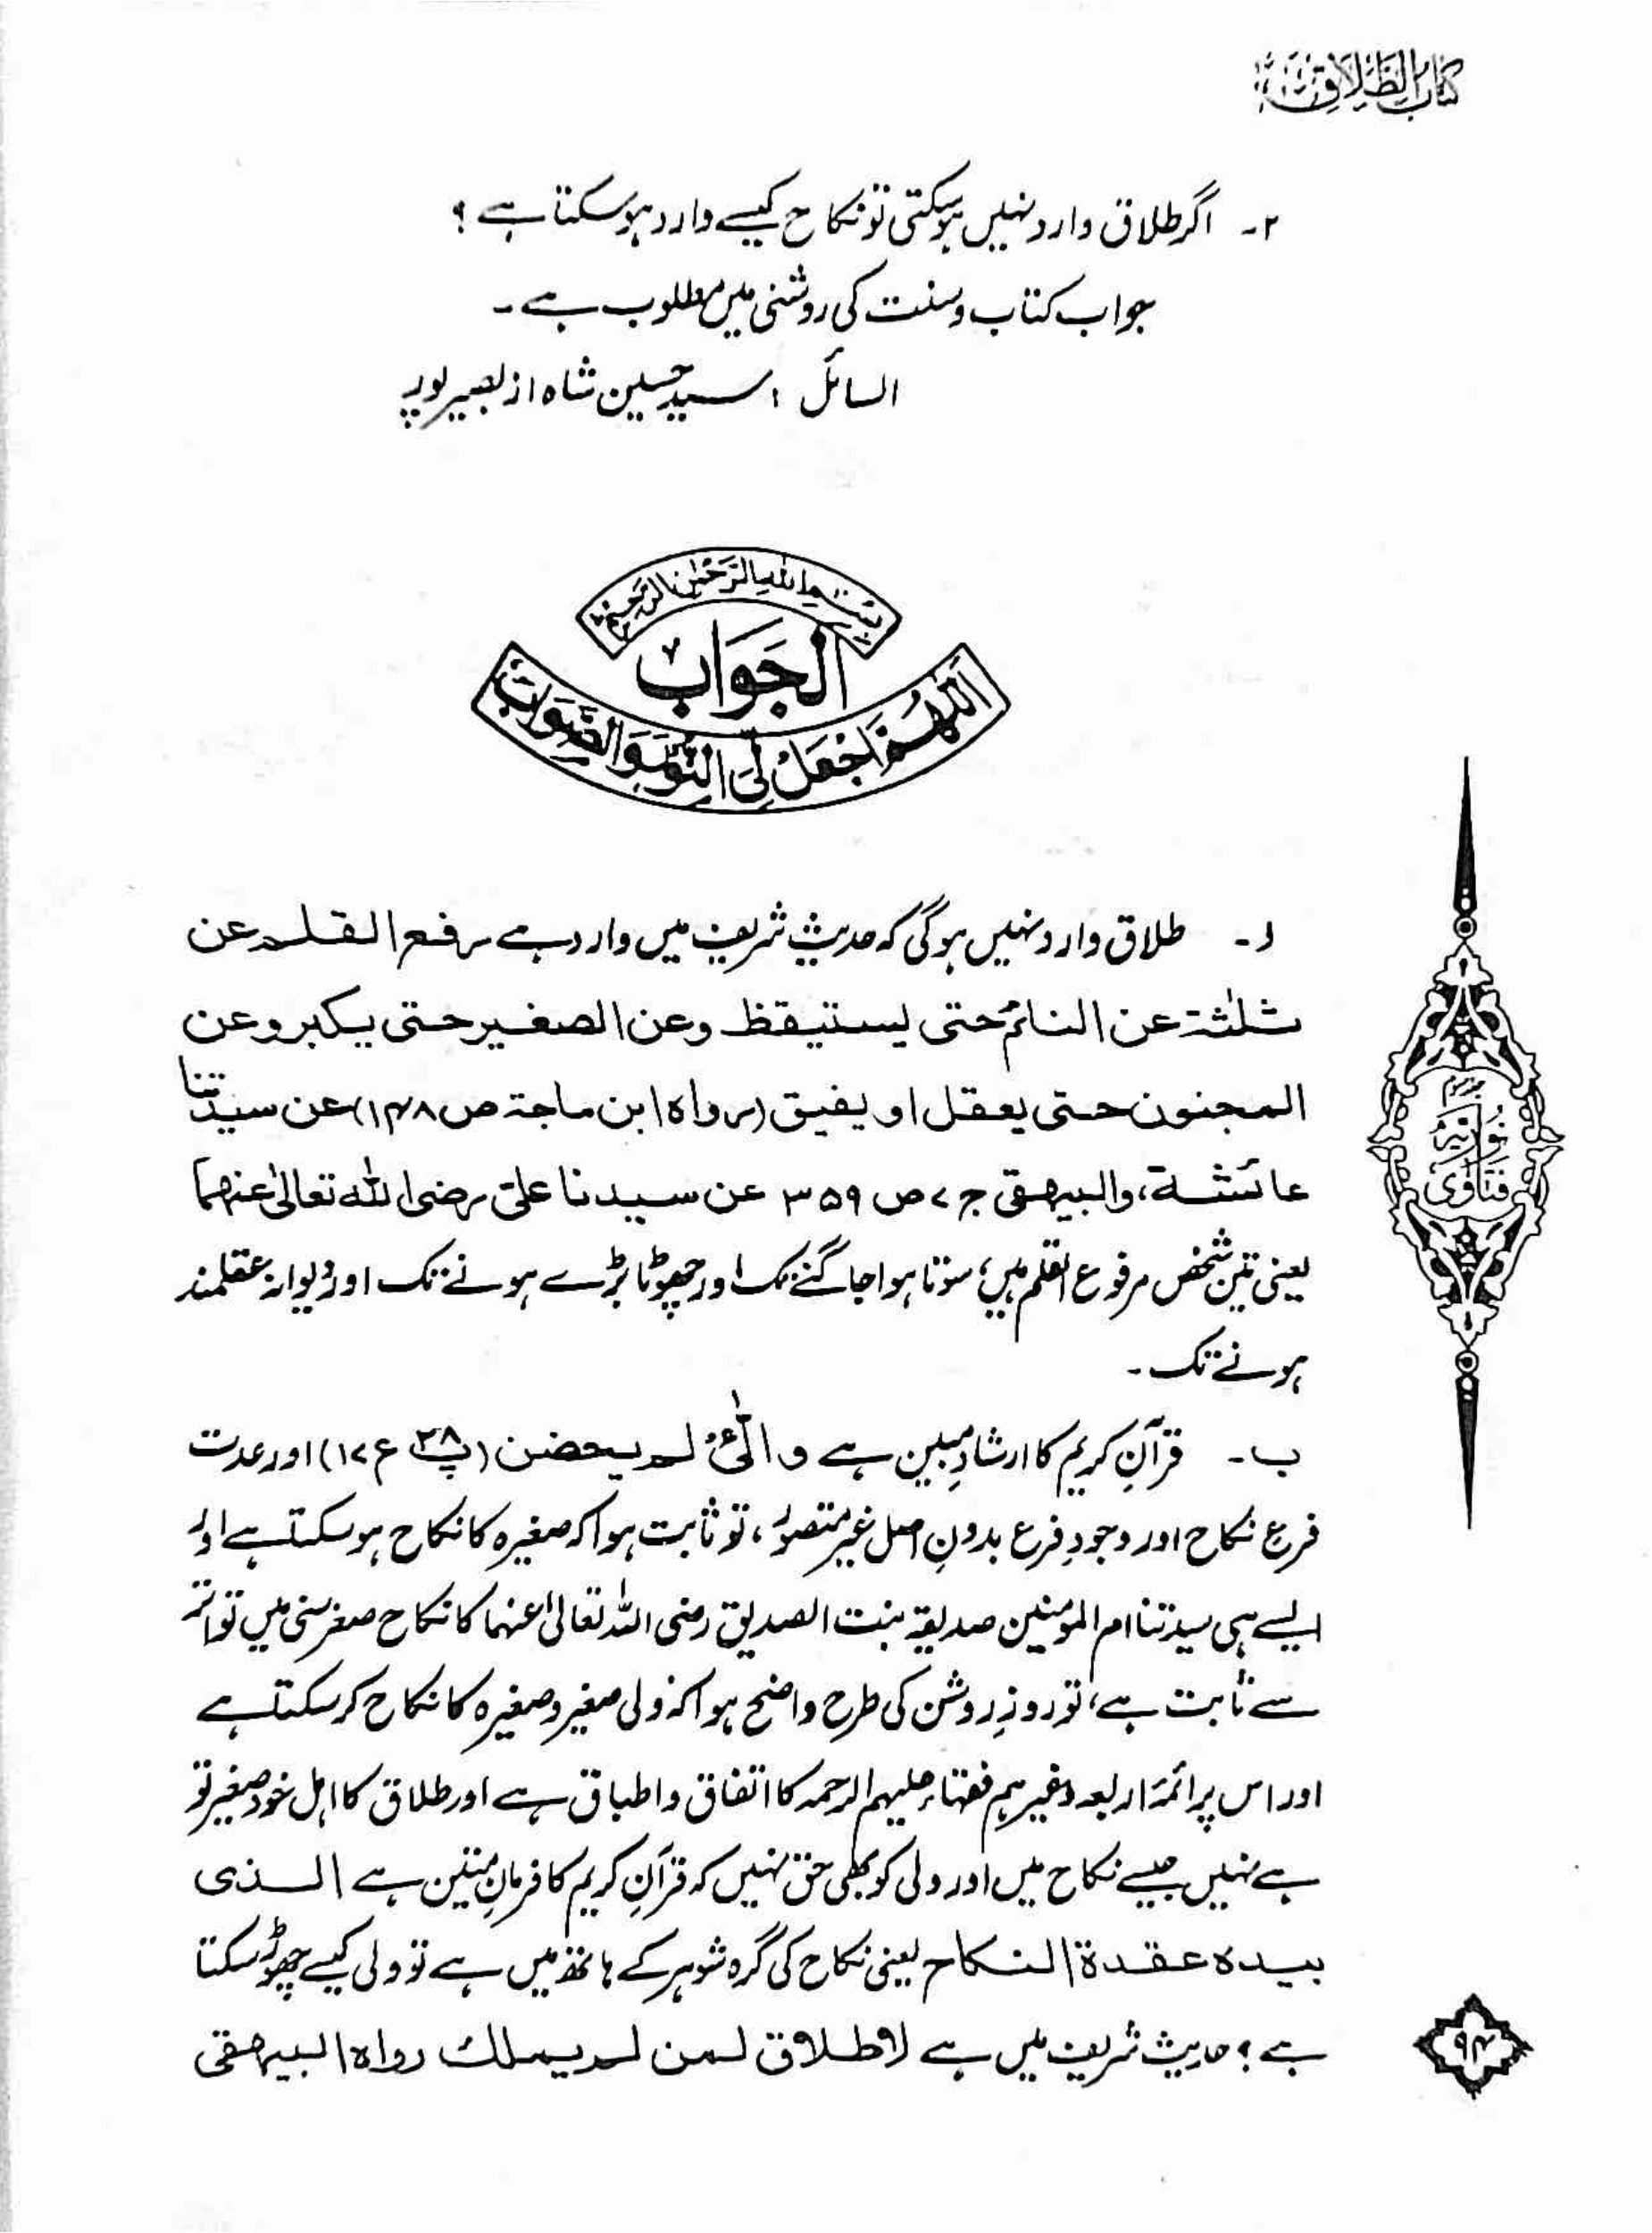 کتاب الطلاق
۲۔ اگر طلاق وارد نہیں ہوسکتی تو نکاح کیسے وارد ہوسکتا ہے ؟
جواب کتاب وسنت کی روشنی میں مطلوب ہے ۔
السائل : سید حسین شاہ از بصیر پور
بسم الله الرحمن الرحيم
الجواب
اللهم اجعل لي النور والصواب
ا۔ طلاق وارد نہیں ہوگی کہ حدیث شریف میں وارد ہے رفع القلم عن
ثلٰثة عن النائم حتی یستیقظ وعن الصغیر حتی یکبر وعن
المجنون حتی یعقل او یفیق (رواہ ابن ماجة ص ۱۴۸) عن سیدتنا
عائشة، والبیھقی ج ۷ ص ۳۵۹ عن سیدنا علی رضی اللہ تعالیٰ عنھما
یعنی تین شخص مرفوع القلم ہیں؛ سوتا ہوا جاگنے تک اور چھوٹا بڑے ہونے تک اور دیوانہ عقلمند
ہونے تک ۔
ب۔ قرآنِ کریم کا ارشادِ مبین ہے و الّٰئ لم یحضن (پ ۲۸ ع ۱۷) اور عدت
فرعِ نکاح اور وجودِ فرع بدونِ اصل غیر متصور ، تو ثابت ہوا کہ صغیرہ کا نکاح ہوسکتا ہے اور
ایسے ہی سیدتنا ام المومنین صدیقہ بنت الصدیق رضی اللہ تعالیٰ عنہما کا نکاح صغر سنی میں تواتر
سے ثابت ہے، تو روزِ روشن کی طرح واضح ہوا کہ ولی صغیر و صغیرہ کا نکاح کرسکتا ہے
اور اس پر ائمۂ اربعہ وغیرہم فقہاء علیہم الرحمہ کا اتفاق و اطباق ہے اور طلاق کا اہل خود صغیر تو
ہے نہیں جیسے نکاح میں اور ولی کو بھی حق نہیں کہ قرآنِ کریم کا فرمانِ متین ہے الذی
بیدہ عقدة النکاح یعنی نکاح کی گرہ شوہر کے ہاتھ میں ہے تو ولی کیسے چھوڑ سکتا
ہے ؟ حدیث شریف میں ہے لا طلاق لمن لم یملك رواہ البیھقی
فتاویٰ نوریہ
۹۴